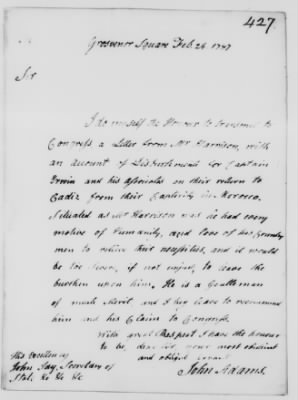 427
Grosvenor Square Feb. 26 1787
Sir
I do myself the Honour to transmit to
Congress a Letter from Mr Harrison, with
an account of Disbursements for Captain
Erwin and his associates on their return to
Cadiz from their Captivity in Morocco.
Situated as Mr Harrison was he had every
motive of humanity, and love of his Country
men to relieve their necessities, and it would
be too severe, if not unjust, to leave the
burthen upon him. He is a Gentleman
of much Merit and I beg leave to recommend
him and his Claim to Congress.
With great Respect I have the honour
to be, dear Sir your most obedient
and obliged servant
John Adams.
His Excellency
John Jay, Secretary of
State &c &c &c